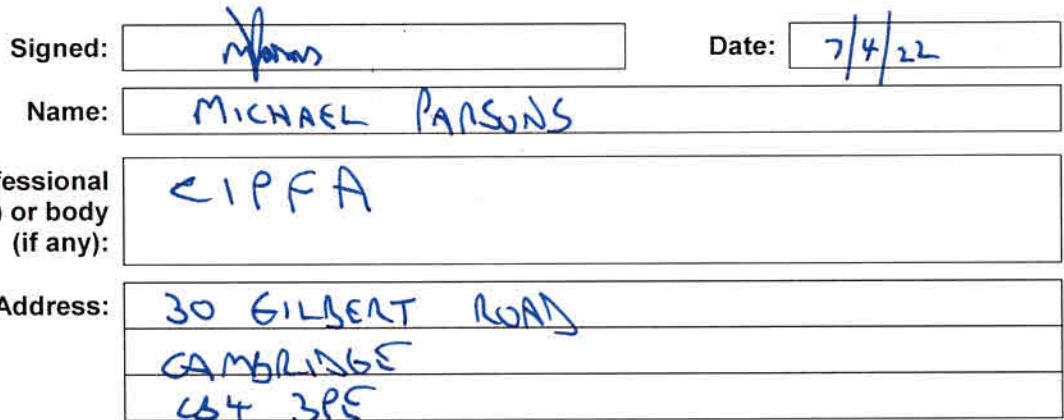 Signed: MParsons Date: 7/4/22
Name: MICHAEL PARSONS
fessional CIPFA
) or body
(if any):
Address: 30 GILBERT ROAD
CAMBRIDGE
CB4 3PE